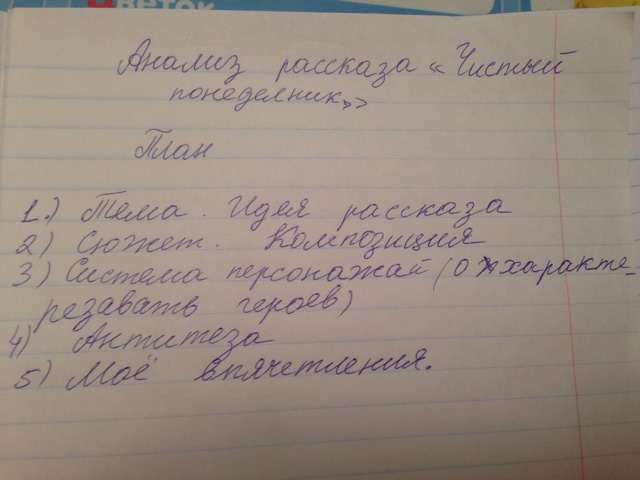 Цветок
Анализ рассказа «Чистый
понеделник»
План
1.) Тема. Идея рассказа
2) Сюжет. Композиция
3) Система персонажай (охаракте-
резавать героев)
4) Антитеза
5) Моё впячетления.